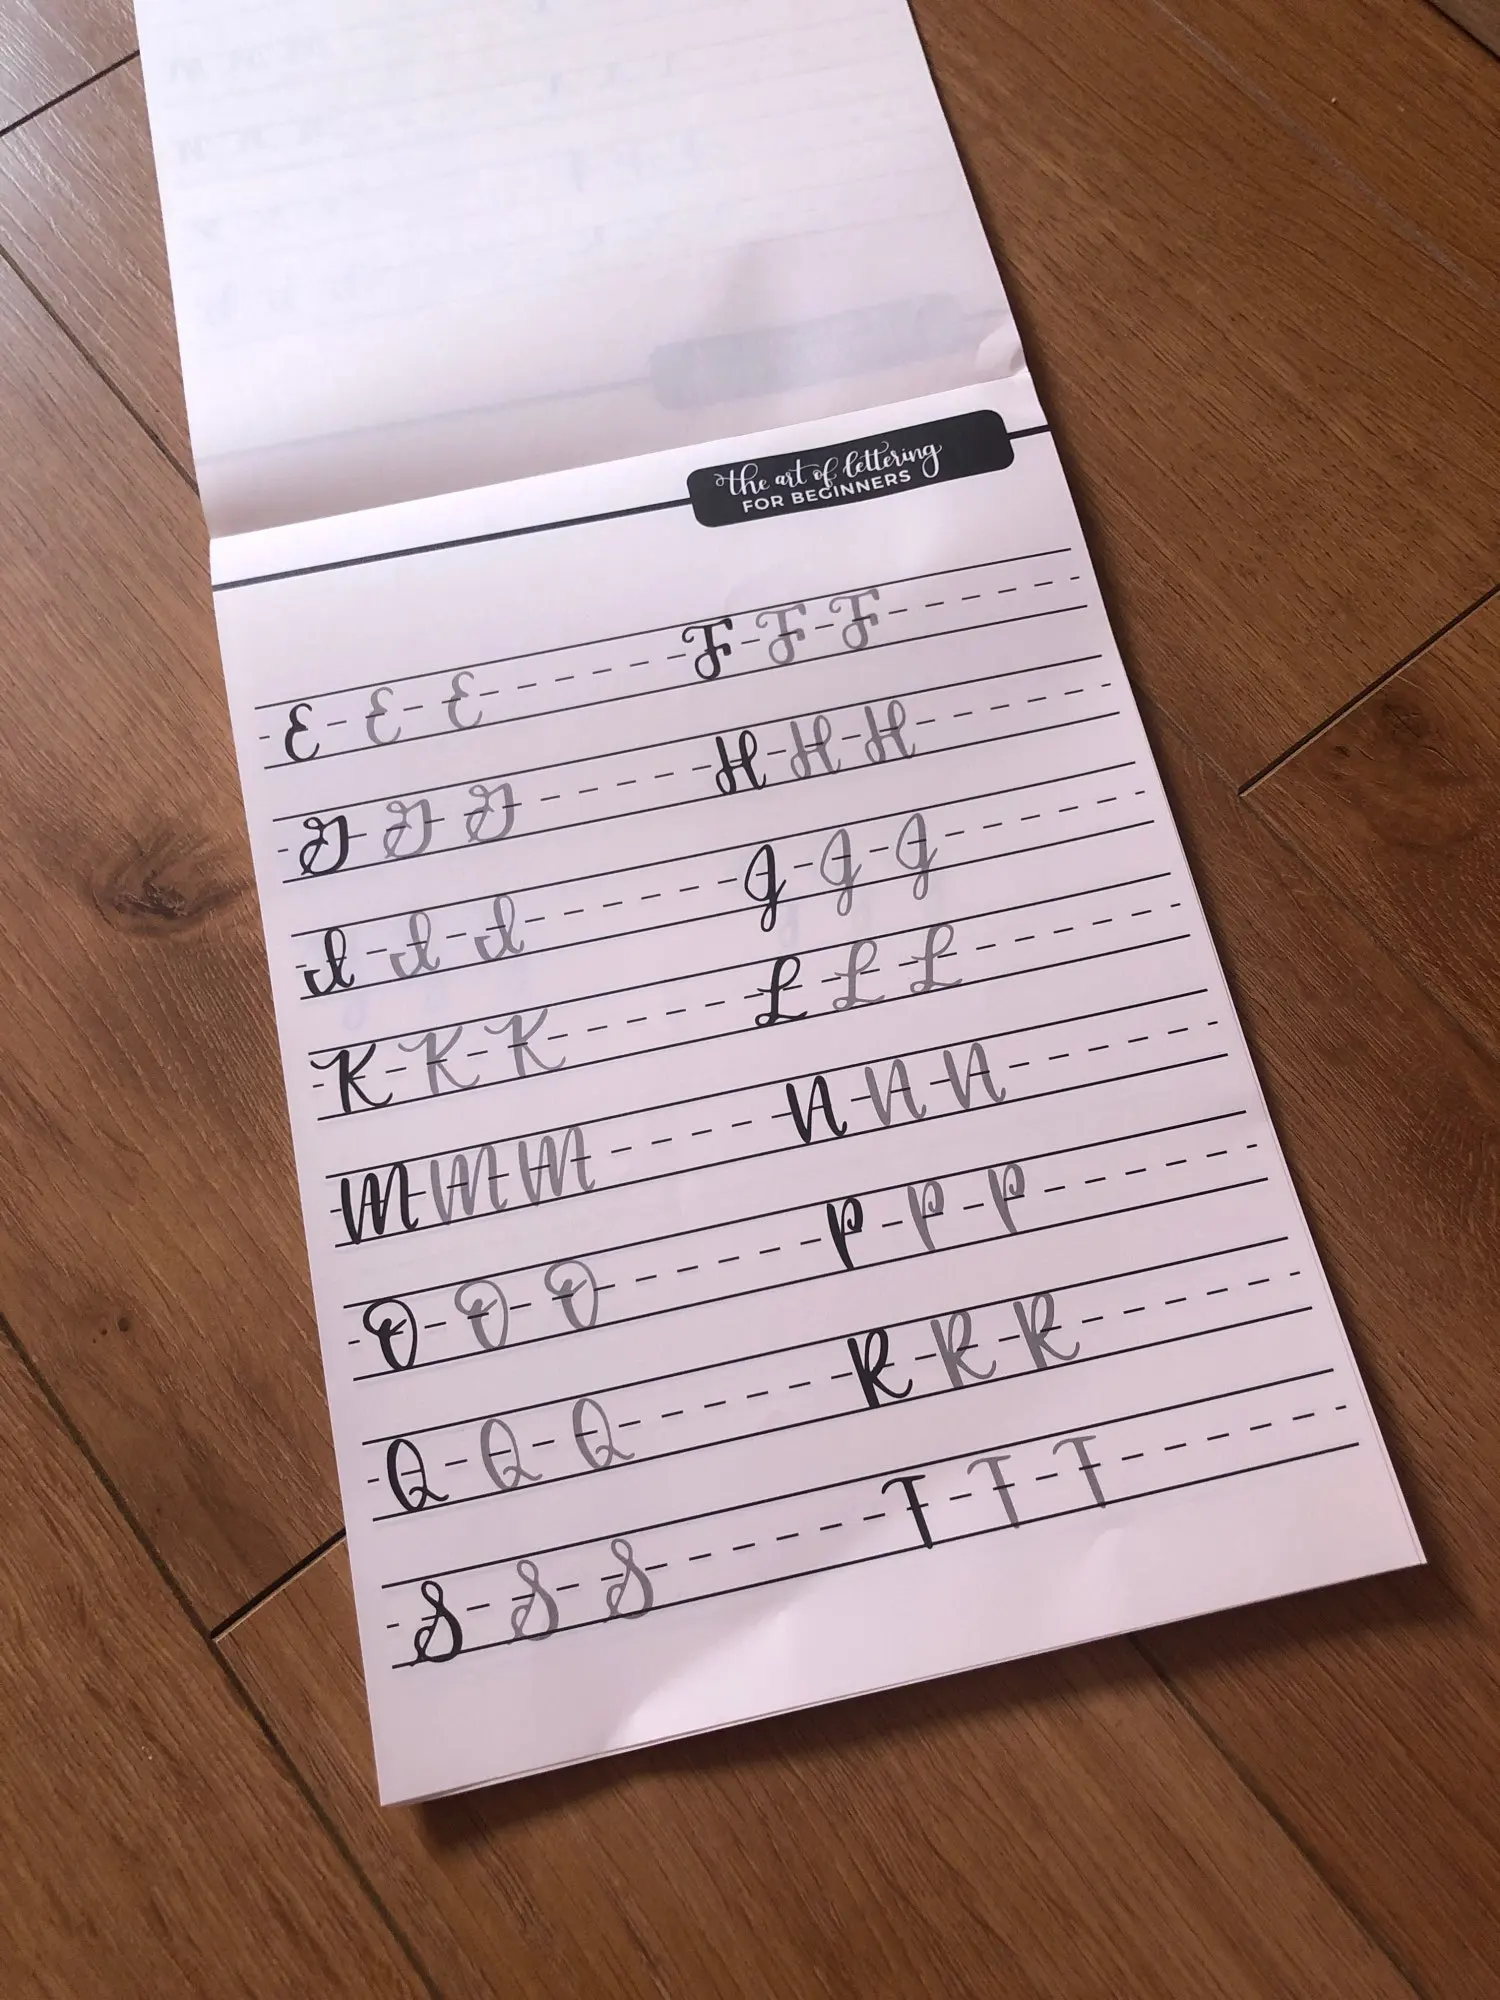 the art of lettering
FOR BEGINNERS
E E E F F F
G G G H H H
I I I J J J
K K K L L L
M M M N N N
O O O P P P
Q Q Q R R R
S S S T T T